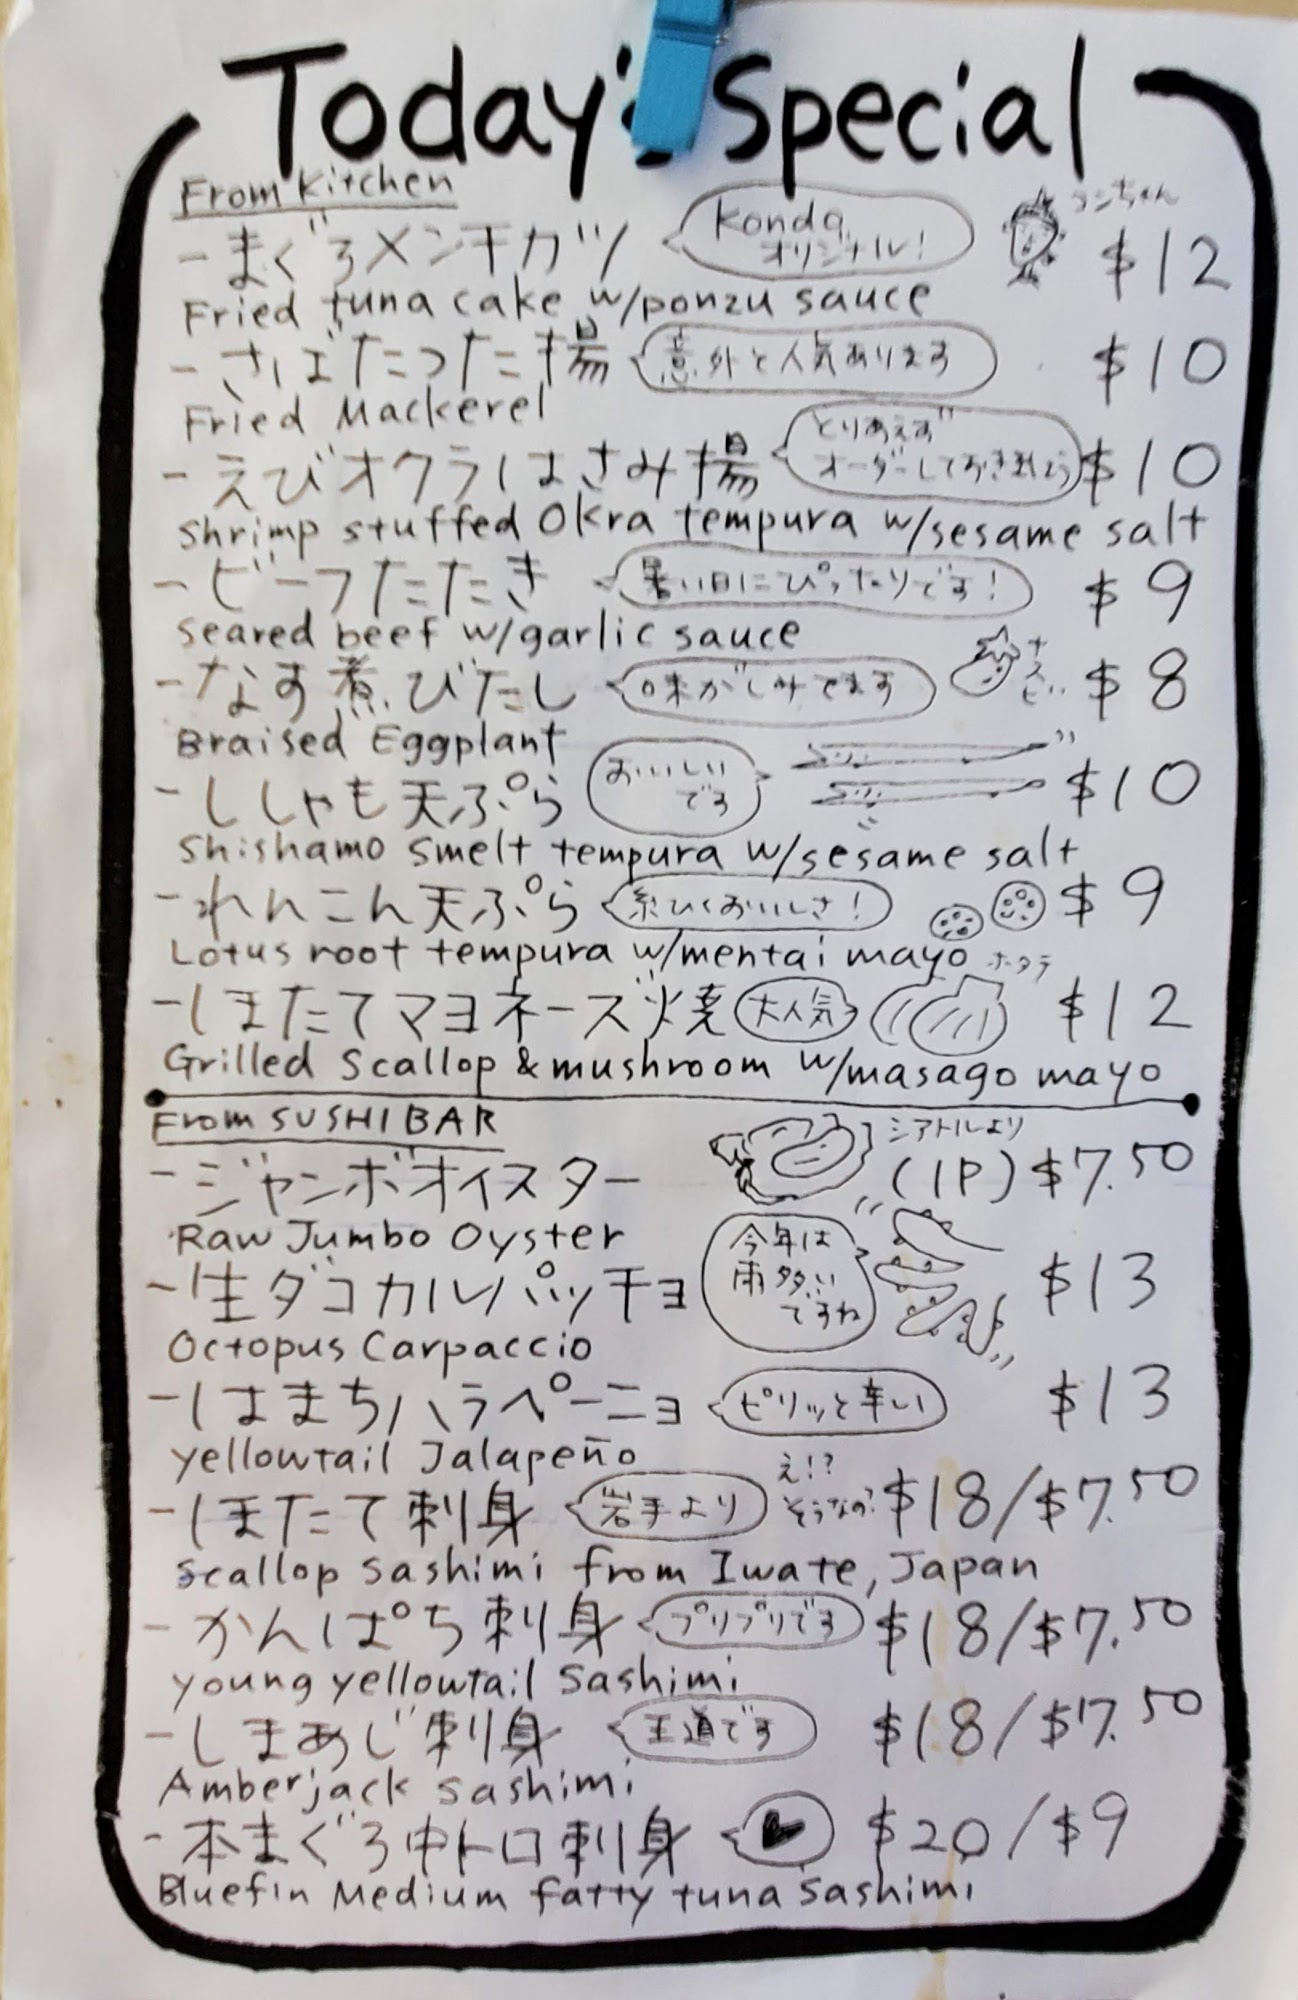 Today's Special
From Kitchen
- まぐろメンチカツ Konda オリジナル! $12
Fried tuna cake w/ponzu sauce
- さばたつた揚 意外と人気あります $10
Fried Mackerel
- えびオクラはさみ揚 とりあえず オーダーしておきましょう $10
Shrimp stuffed Okra tempura w/sesame salt
- ビーフたたき 暑い日にぴったりです! $9
Seared beef w/garlic sauce
- なす煮びたし 味がしみてます ナスビ $8
Braised Eggplant
- ししゃも天ぷら おいしいです $10
Shishamo smelt tempura w/sesame salt
- れんこん天ぷら 糸ひくおいしさ! $9
Lotus root tempura w/mentai mayo
- ほたてマヨネーズ焼 大人気 ホタテ $12
Grilled Scallop & mushroom w/masago mayo
From SUSHI BAR
- ジャンボオイスター シアトルより (1P) $7.50
Raw Jumbo Oyster
- 生ダコカルパッチョ 今年は雨多いですね $13
Octopus Carpaccio
- はまちハラペーニョ ピリッと辛い $13
Yellowtail Jalapeño
- ほたて刺身 岩手より え!? そうなの? $18/$7.50
Scallop Sashimi from Iwate, Japan
- かんぱち刺身 プリプリです $18/$7.50
young yellowtail Sashimi
- しまあじ刺身 王道です $18/$7.50
Amberjack sashimi
- 本まぐろ中トロ刺身 $20/$9
Bluefin Medium fatty tuna Sashimi